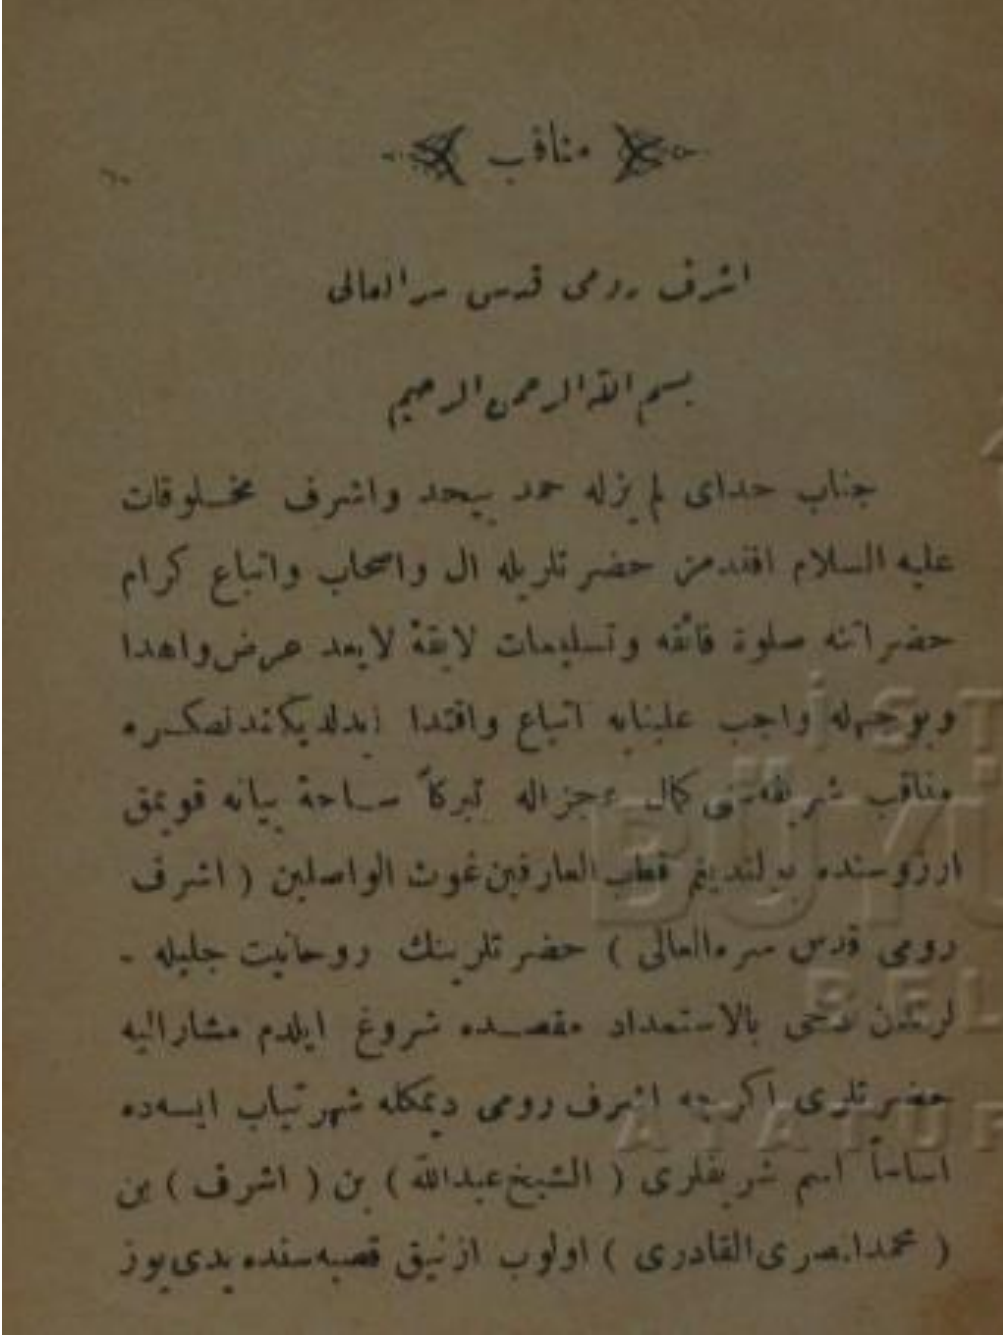 مناقب
اشرف رومی قدس سر العالی
بسم الله الرحمن الرحیم
جناب خدای لم یزله حمد بیحد واشرف مخلوقات
علیه السلام افندمز حضرتلریله ال واصحاب واتباع کرام
حضراتنه صلوة فائقه وتسلیمات لایقهٔ لایعد عرض واهدا
وبوجهله واجب علینابه اتباع واقتدا ایدلدیکندنصکره
مناقب شریفه‌سنی کمال عجزاله تبرکاً ساحهٔ بیانه قویمق
ارزوسنده بولندیغم قطب العارفین غوث الواصلین ( اشرف
رومی قدس سره‌العالی ) حضرتلرینك روحانیت جلیله -
لرندن دخی بالاستمداد مقصده شروغ ایلدم مشارالیه
حضرتلری اکرچه اشرف رومی دیمکله شهرتیاب ایسه‌ده
اساساً اسم شریفلری ( الشیخ عبدالله ) بن ( اشرف ) بن
( محمدا.صری القادری ) اولوب ازنیق قصبه‌سنده یدی یوز
İST
BÜYÜ
BEL
ATATÜR